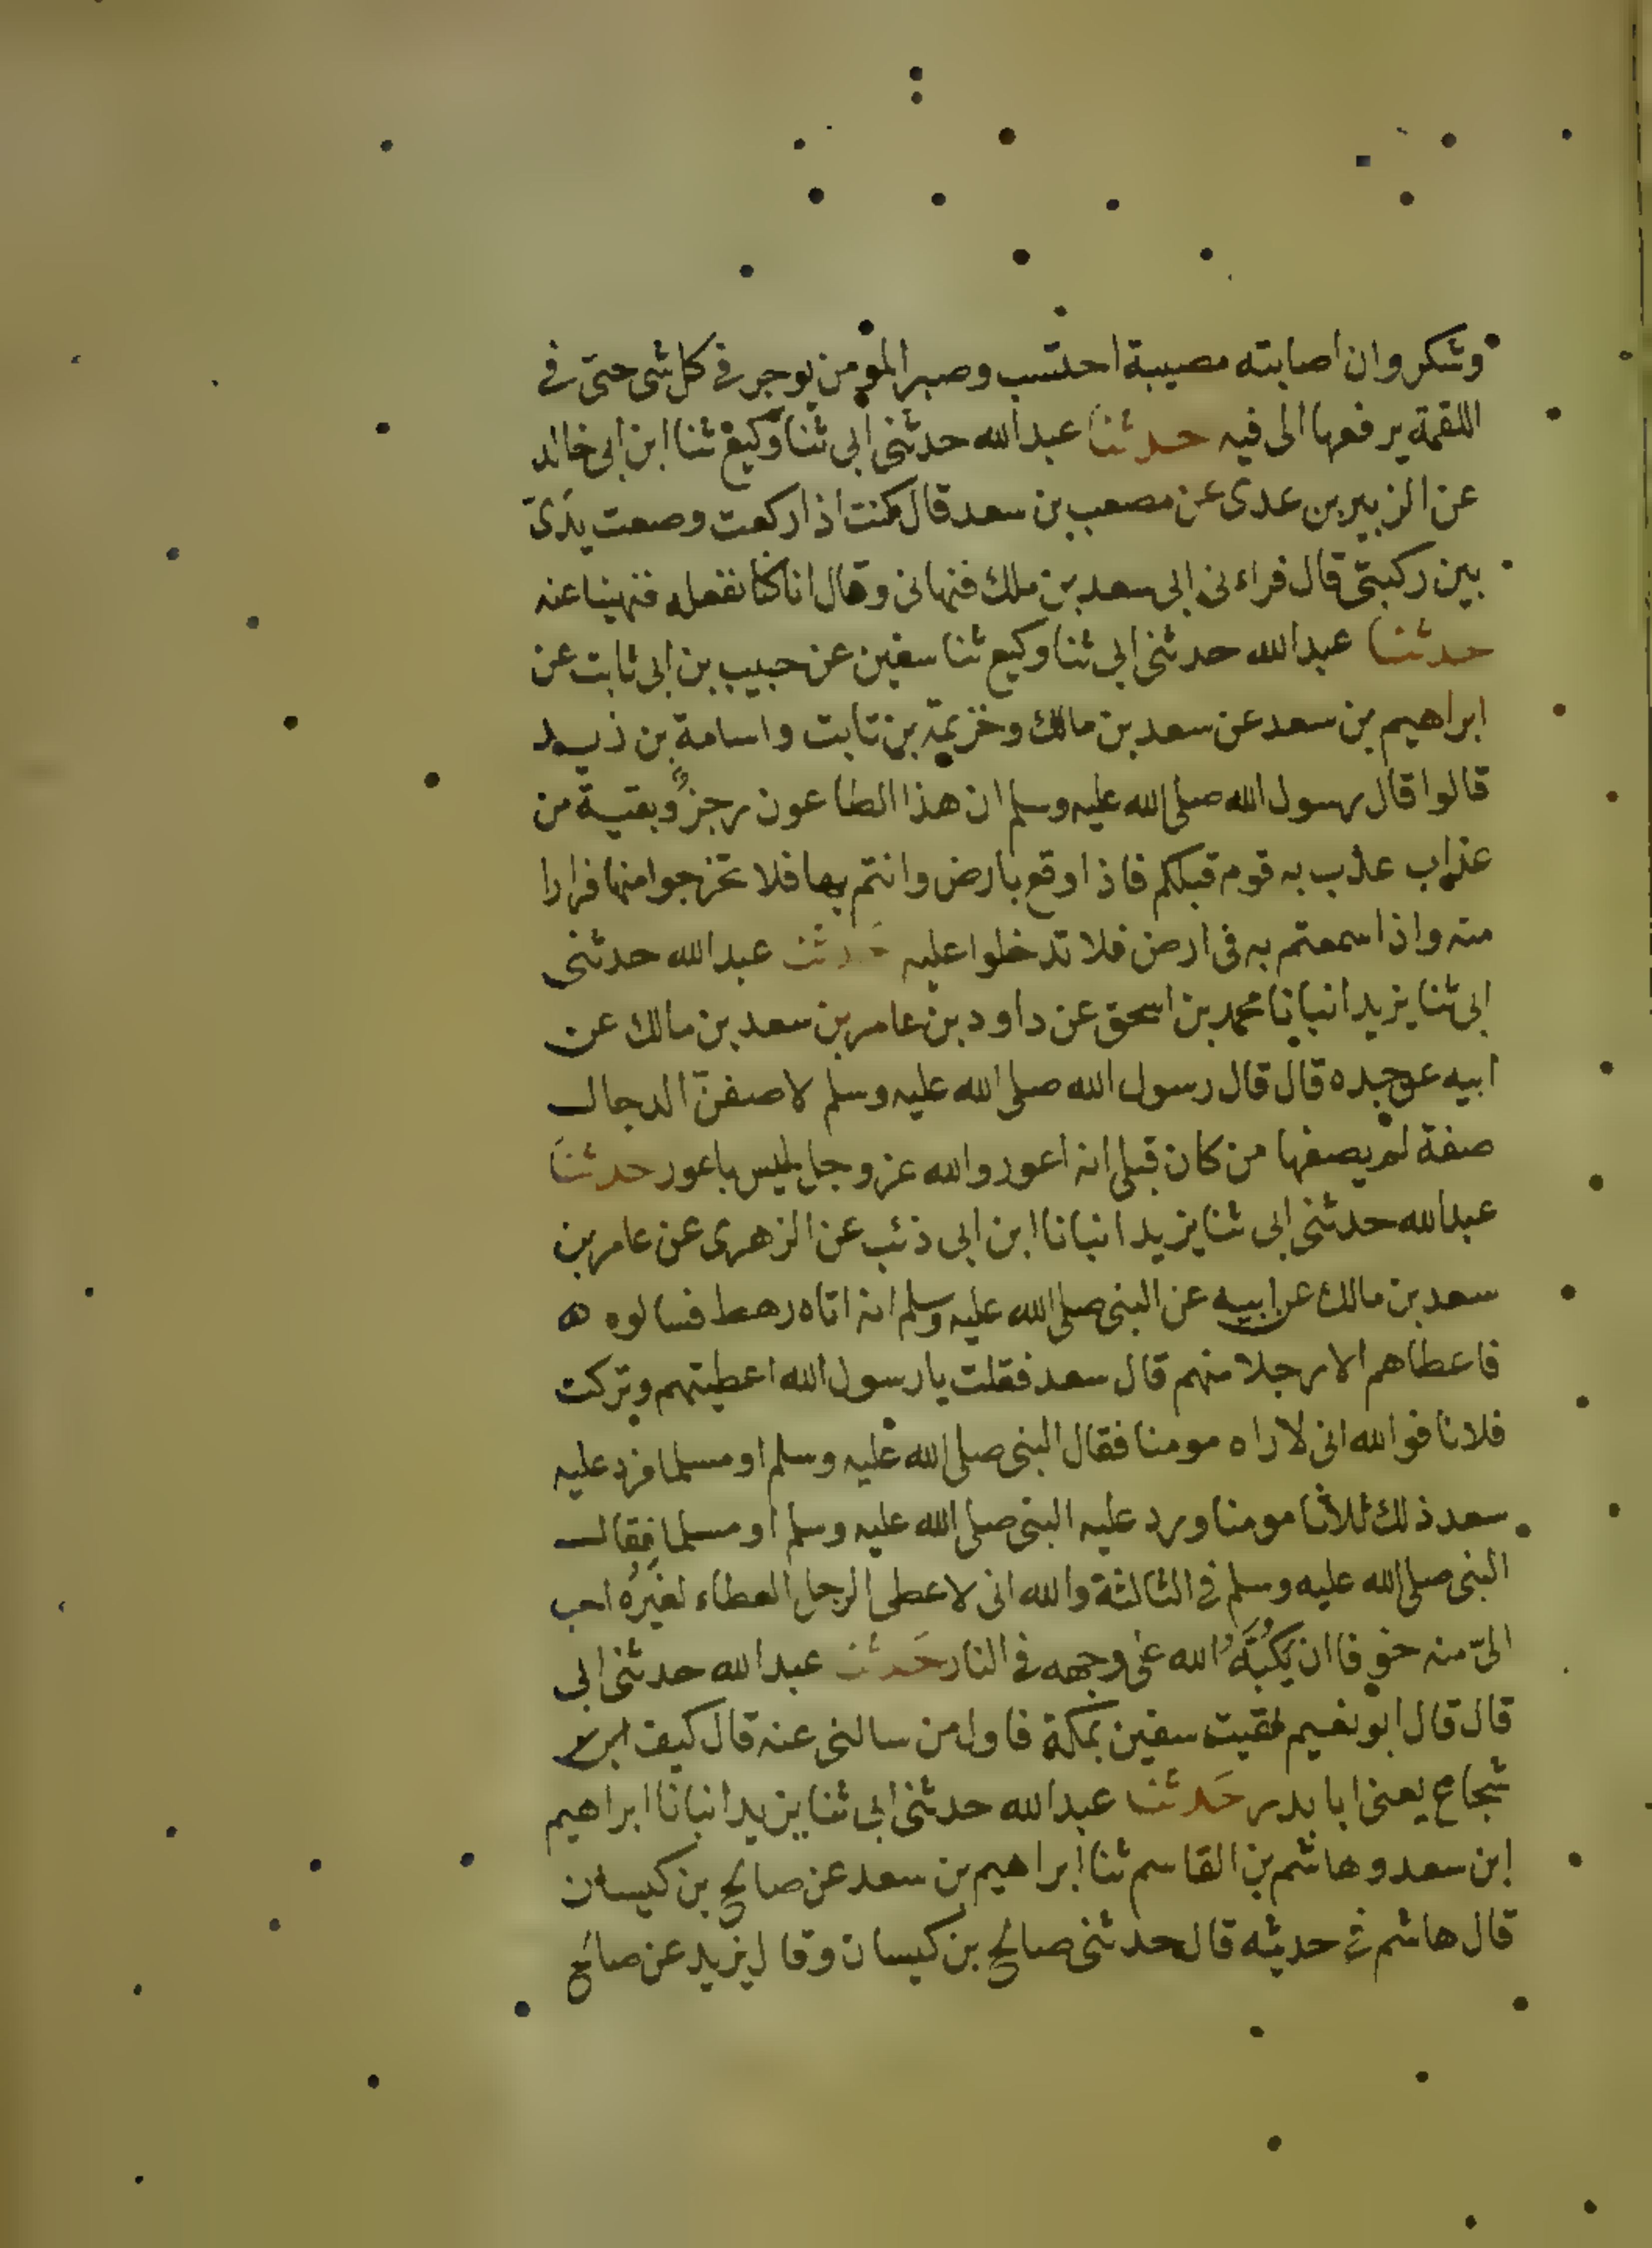 وشكر وان اصابته مصيبة احتسب وصبر المومن يوجر في كل شى حتى في
اللقمة يرفعها الى فيه حدثنا عبد الله حدثنى ابى ثنا وكيع ثنا ابن ابى خالد
عن الزبير بن عدى عن مصعب بن سعد قال كنت اذا ركعت وضعت يدىّ
بين ركبتى قال فراءنى ابى سعد بن ملك فنهانى وقال انا كنا نفعله فنهينا عنه
حدثنا عبد الله حدثنى ابى ثنا وكيع ثنا سفين عن حبيب بن ابى ثابت عن
ابراهيم بن سعد عن سعد بن مالك وخزيمة بن ثابت واسامة بن زيد
قالوا قال رسول الله صلى الله عليه وسلم ان هذا الطاعون رجزٌ وبقية من
عذاب عذب به قوم قبلكم فاذا وقع بارض وانتم بها فلا تخرجوا منها فرارا
منه واذا سمعتم به فى ارض فلا تدخلوا عليه حدثنا عبد الله حدثنى
ابى ثنا يزيد انبانا محمد بن اسحق عن داود بن عامر بن سعد بن مالك عن
ابيه عن جده قال قال رسول الله صلى الله عليه وسلم لاصفنّ الدجال
صفة لم يصفها من كان قبلى انه اعور والله عز وجل ليس باعور حدثنا
عبد الله حدثنى ابى ثنا يزيد انبانا ابن ابى ذئب عن الزهرى عن عامر بن
سعد بن مالك عن ابيه عن النبى صلى الله عليه وسلم انه اتاه رهط فسالوه ه
فاعطاهم الا رجلا منهم قال سعد فقلت يا رسول الله اعطيتهم وتركت
فلانا فوالله انى لاراه مومنا فقال النبى صلى الله عليه وسلم او مسلما فرد عليه
سعد ذلك ثلاثا مومنا ورد عليه النبى صلى الله عليه وسلم او مسلما فقال
النبى صلى الله عليه وسلم في الثالثة والله انى لاعطى الرجل العطاء لغيرُه احب
الىّ منه خوفا ان يكبَّهُ الله على وجهه في النار حدثنا عبد الله حدثنى ابى
قال قال ابو نعيم لقيت سفين بمكة فاول من سالنى عنه قال كيف
شجاع يعنى ابا بدر حدثنا عبد الله حدثنى ابى ثنا يزيد انبانا ابراهيم
ابن سعد وهاشم بن القاسم ثنا ابراهيم بن سعد عن صالح بن كيسان
قال هاشم في حديثه قال حدثنى صالح بن كيسان وقال يزيد عن صالح